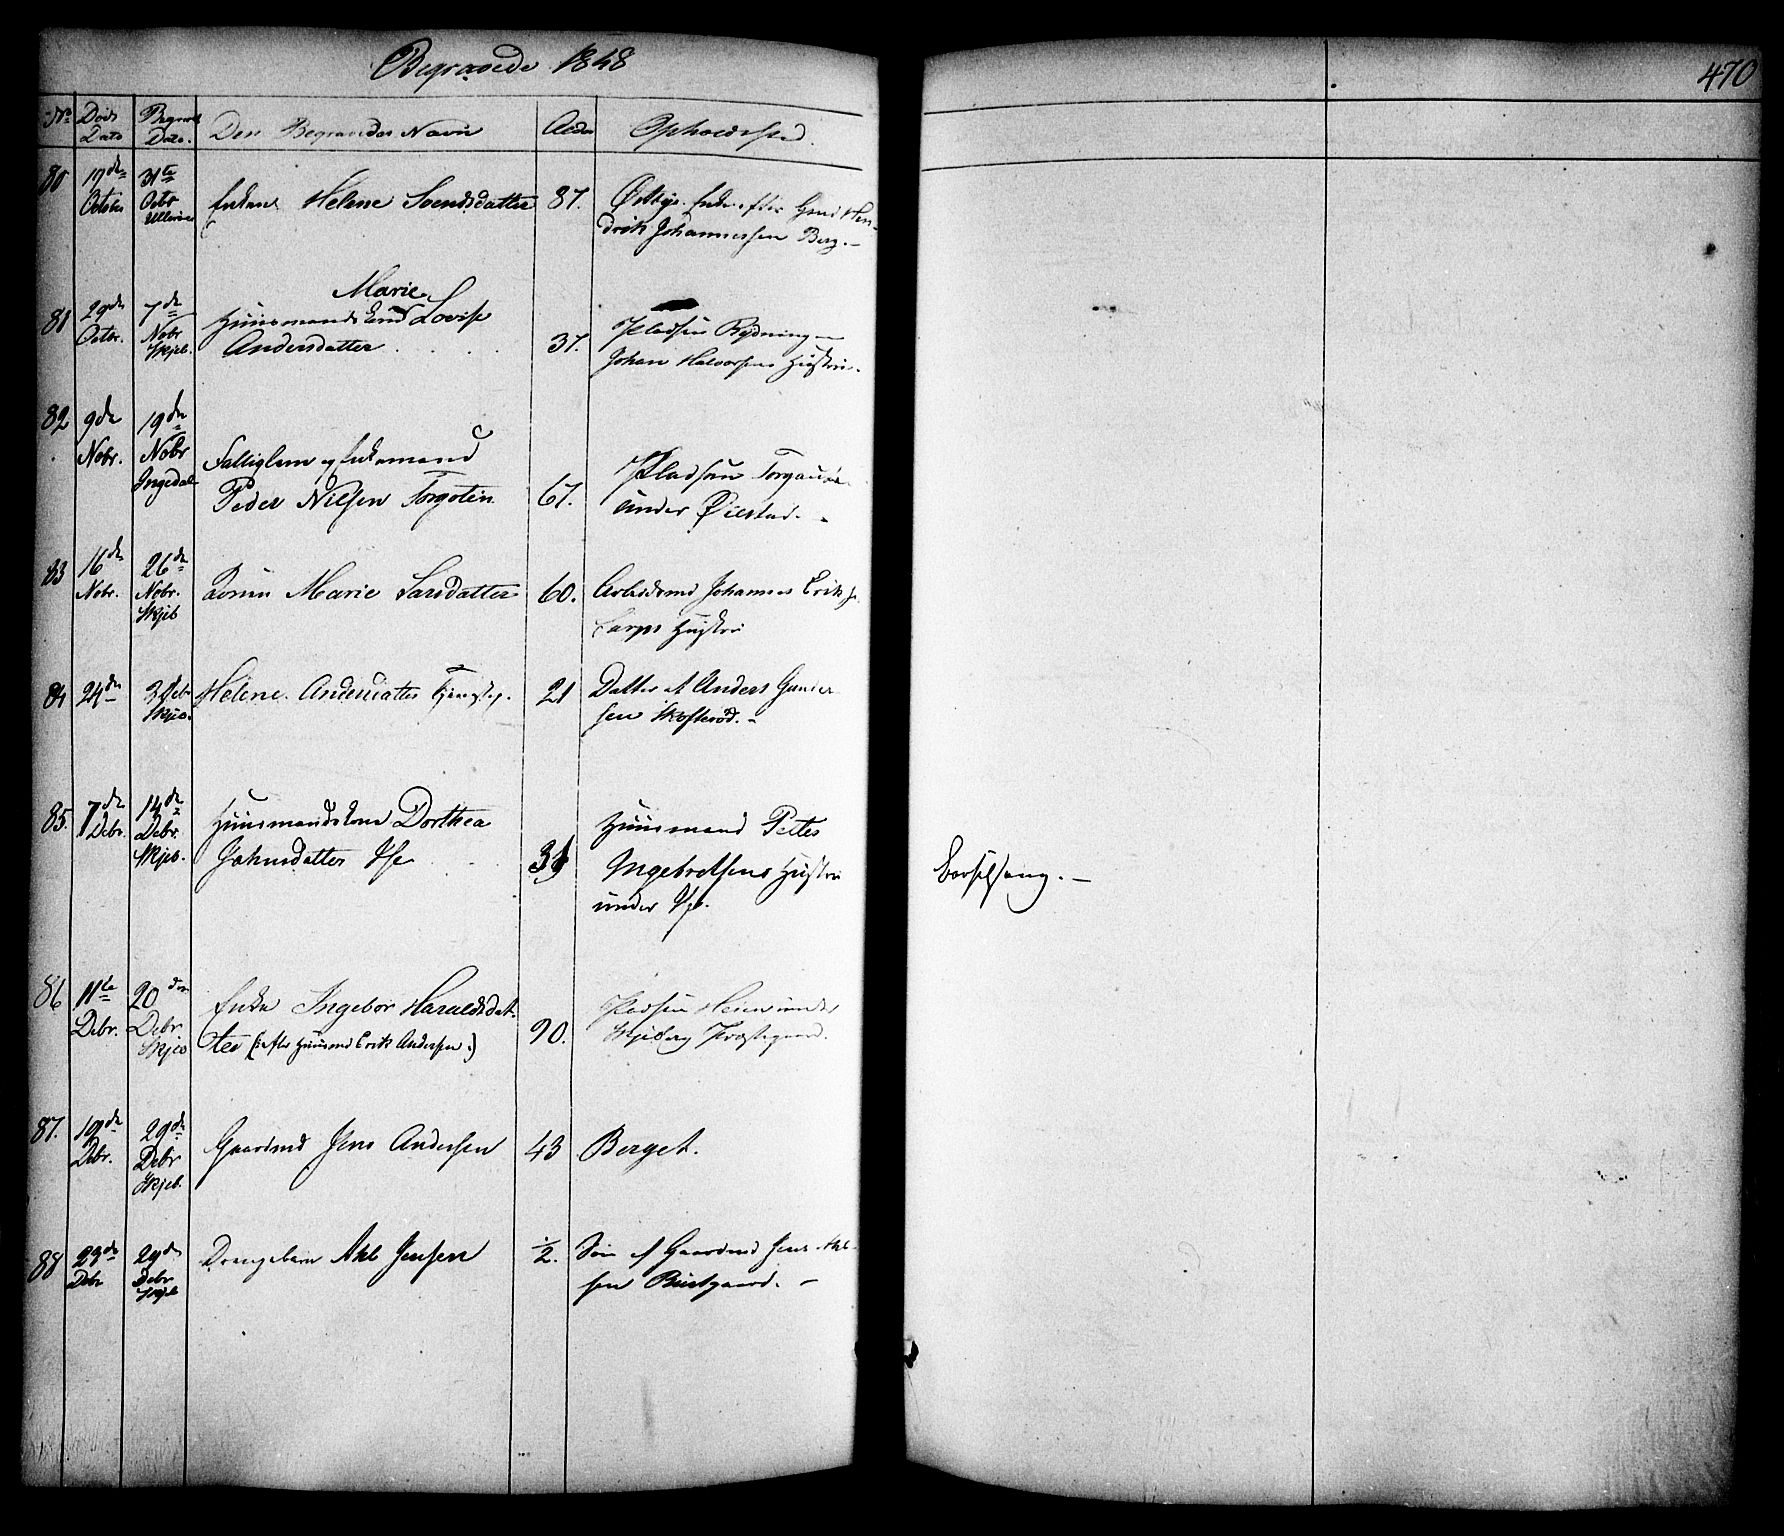 Begravede 1848
470
No Døds Dato Begrav Dato. Den Begravedes Navn Alder Opholdssted.
80 17de October 31te Octbr Ullerø Enken Helene Svendsdatter 87. Østbye. Enke efter Gmd Hen-
drik Johannessen Berg.-
81 29de Octbr. 7de Nobr Skjeb. Huusmandskone Marie Lovise
Andersdatter 37. Pladsen Rydning -
Johan Halvorsens Hustru.
82 9de Nobr. 19de Nobr Ingedal Fattiglem og Enkemand
Peder Nilsen 67. Pladsen
under
83 16de Nobr. 26de Nobr. Skjeb Marie Larsdatter 60. Arbeidsmd Johannes Eriks
Sarps Hustru
84 24de 3die Debr Skjeb. Helene Andersdatter 21 Datter af Anders Gunder-
sen
85. 7de Debr. 14de Debr. Skjeb. Huusmandskone Dorthea
Johnsdatter Ise 31 Huusmand Petter
Ingebretsens Hustru
under Ise. Barselseng. -
86 11te Debr. 20de Debr Skjeb Enke Ingebor Haraldsdat-
ter (: efter Huusmd Erik Andersen :) 90. Pladsen Heien under
Skjeberg Præstegaard.
87. 19de Debr. 29de Debr Skjeb. Gaardmd Jens Andersen 43 Berget.
88 23de Debr 29de Debr Skjeb Drengebarn Axel Jensen 1/2. Søn af Gaardmd Jens Axel-
sen